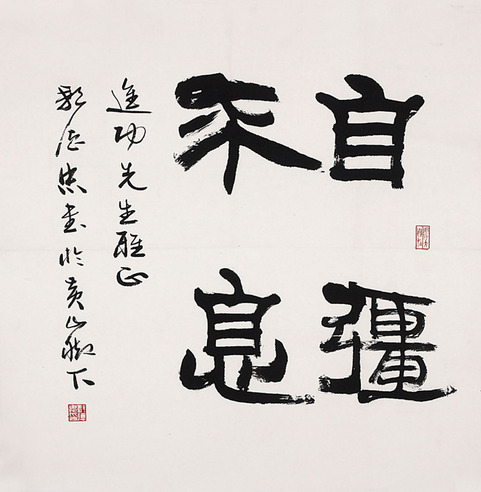 自彊
不息
進功先生雅正
忠書於黄山脚下